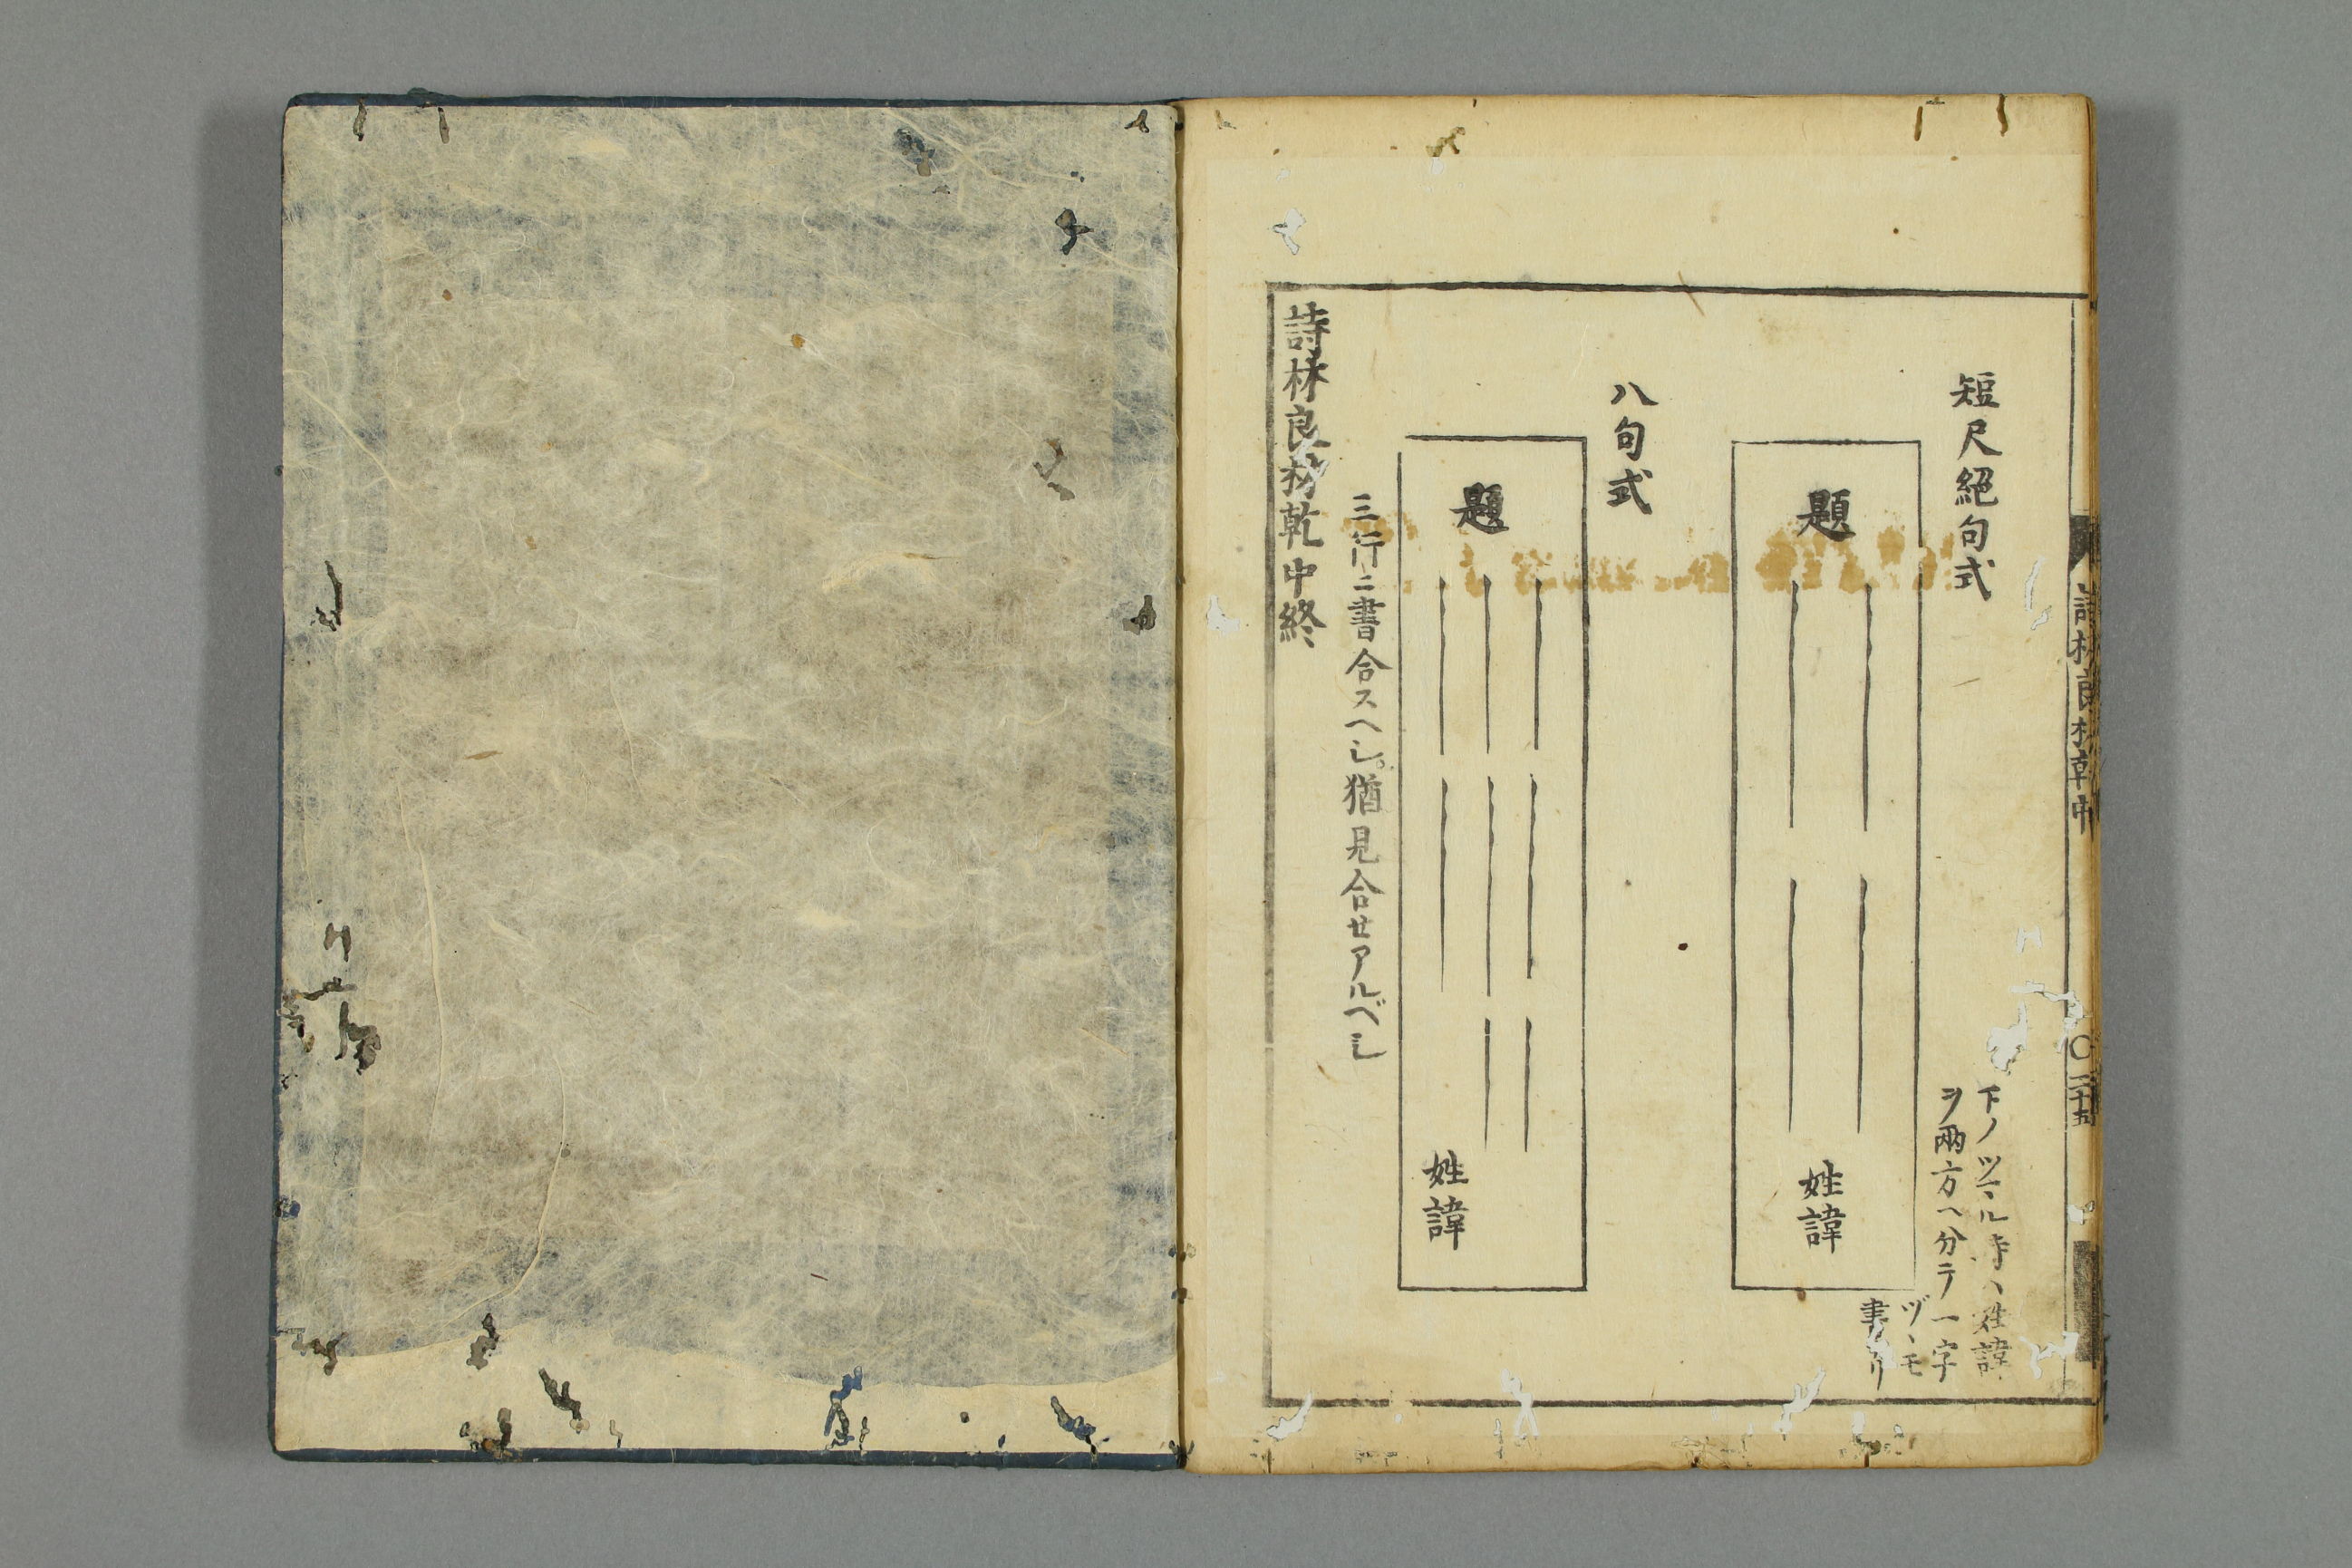 短尺絕句式
下ノツマル時ハ姓諱
ヲ兩方ヘ分テ一字
ヅヽモ
書ナリ
題
姓諱
八句式
題
姓諱
三行ニ書合スヘシ。猶見合せアルベシ
詩林良材乾中終
詩林良材乾中
〇二十五